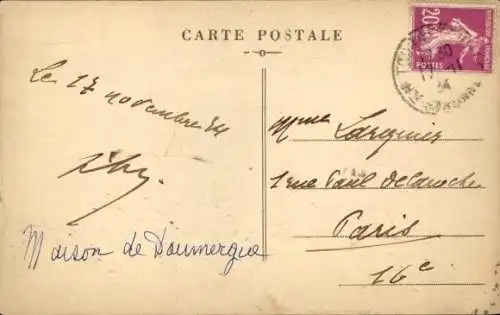 CARTE POSTALE
Le 17 novembre 34
Maison de Doumergue
Mme Larguier
1 rue Paul Delaroche
Paris
16e
20c
POSTES